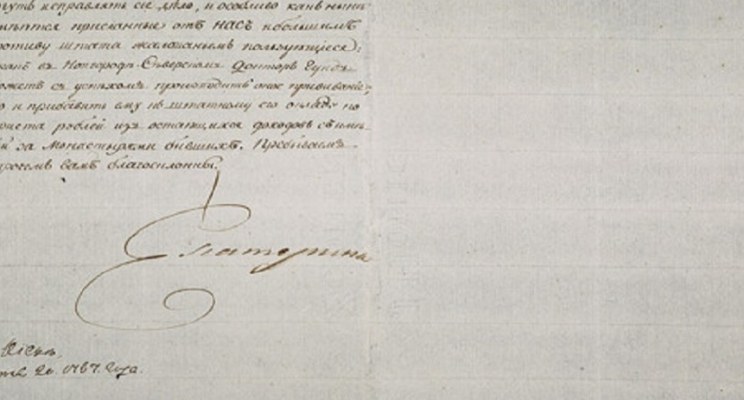 гутъ исправлять сіе дѣло, и особливо какъ нынѣ
имѣются присланные отъ НАСЪ и большимъ
противу штата жалованьемъ пользующіеся;
въ Новгородѣ-Сѣверскомъ Докторъ Гунъ
можетъ съ успѣхомъ производить оное прививаніе;
то и прибавить ему къ штатному его окладу по
риста рублей изъ остающихся доходовъ съ имѣ-
й за Монастырями бывшихъ. Пребываемъ
впрочемъ вамъ благосклонны.
Екатерина
Кіевъ,
20. 1787. Года.